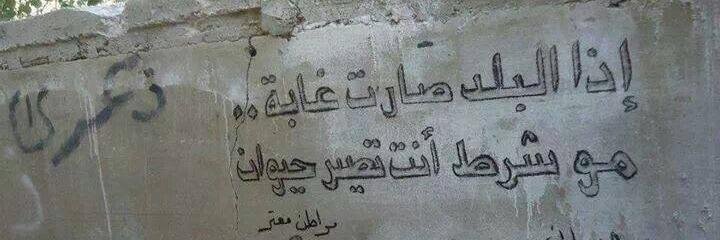 إذا البلد صارت غابة ..
مو شرط أنت تصير حيوان
مواطن معتر